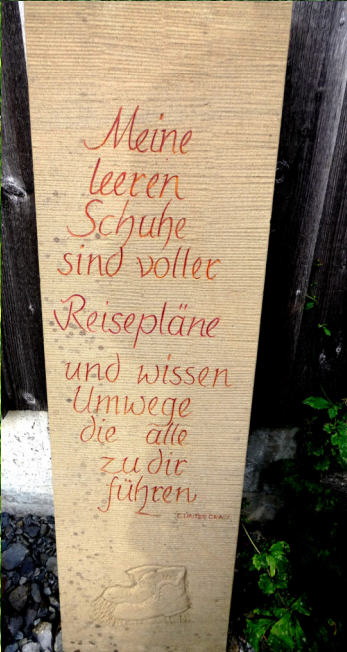 Meine
leeren
Schuhe
sind voller
Reisepläne
und wissen
Umwege
die alle
zu dir
führen
GÜNTER GRASS